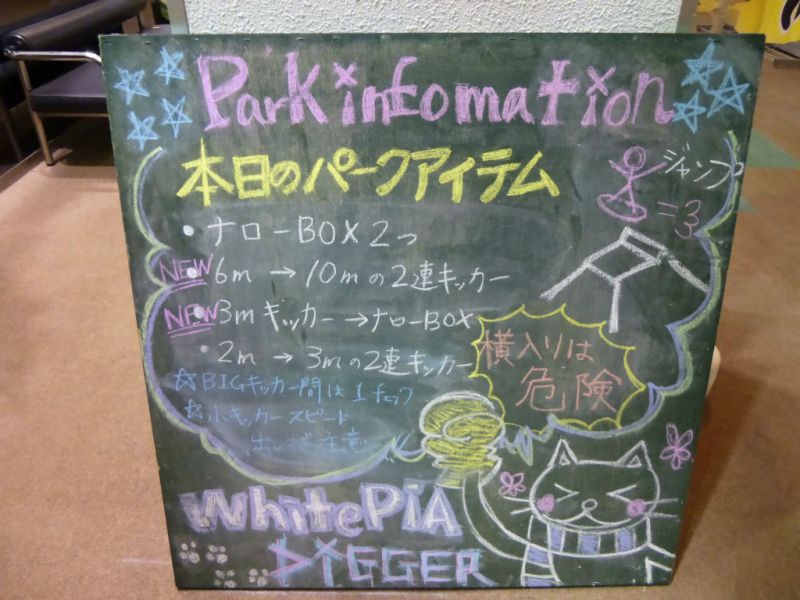 Park infomation
本日のパークアイテム
ジャンプ
=3
・ナローBOX2つ
NEW 6m→10mの2連キッカー
NEW 3mキッカー→ナローBOX
・2m→3mの2連キッカー
横入りは
危険
☆BIGキッカー間は1チェック
☆小キッカースピード
注意
WhitePiA
DiGGER